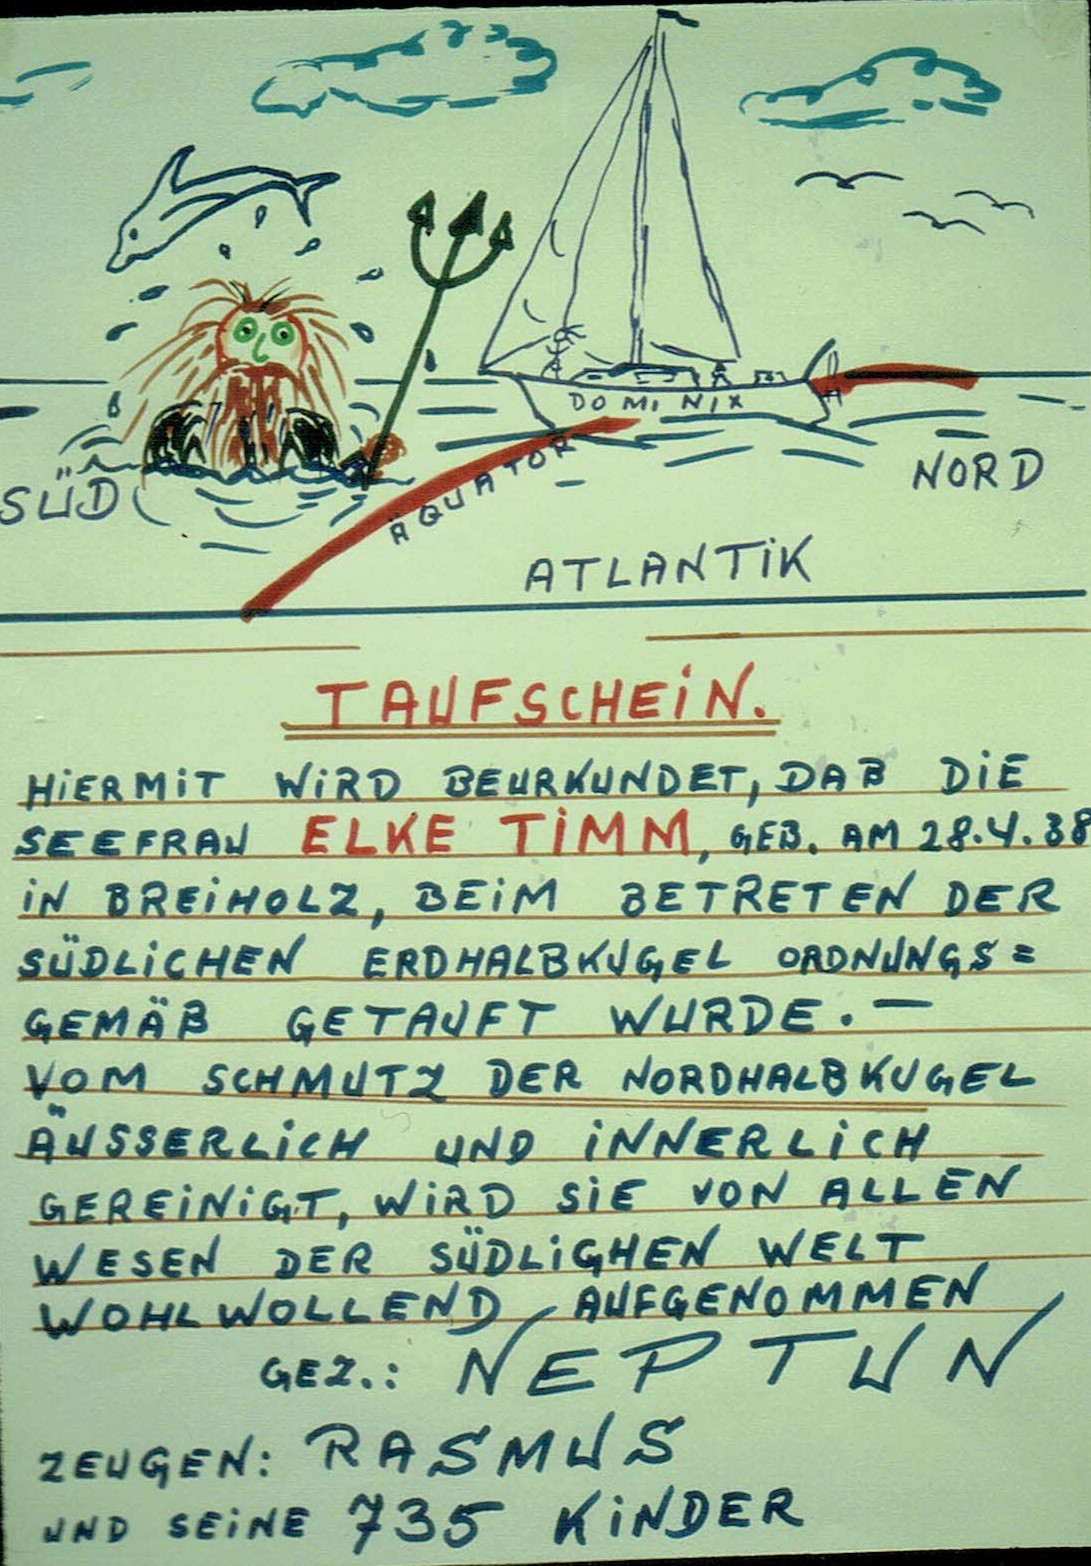 DOMINIX
SÜD
ÄQUATOR
NORD
ATLANTIK
TAUFSCHEIN.
HIERMIT WIRD BEURKUNDET, DAß DIE
SEEFRAU ELKE TIMM, GEB. AM 28.4.38
IN BREIHOLZ, BEIM BETRETEN DER
SÜDLICHEN ERDHALBKUGEL ORDNUNGS=
GEMÄß GETAUFT WURDE. —
VOM SCHMUTZ DER NORDHALBKUGEL
ÄUSSERLICH UND INNERLICH
GEREINIGT, WIRD SIE VON ALLEN
WESEN DER SÜDLIGHEN WELT
WOHLWOLLEND AUFGENOMMEN
GEZ.: NEPTUN
ZEUGEN: RASMUS
UND SEINE 735 KINDER